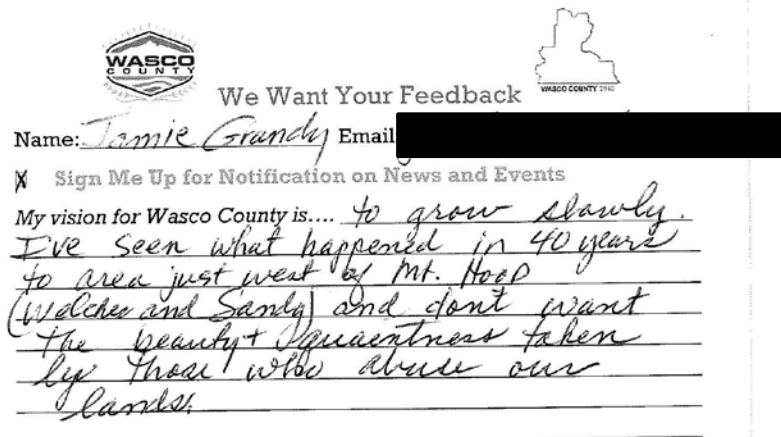 WASCO
COUNTY
WASCO COUNTY
We Want Your Feedback
Name: Jamie Grandy Email
X Sign Me Up for Notification on News and Events
My vision for Wasco County is.... to grow slowly.
I've seen what happened in 40 years
to area just west of Mt. Hood
(Welches and Sandy) and dont want
the beauty + quaentness taken
by those who abuse our
lands.